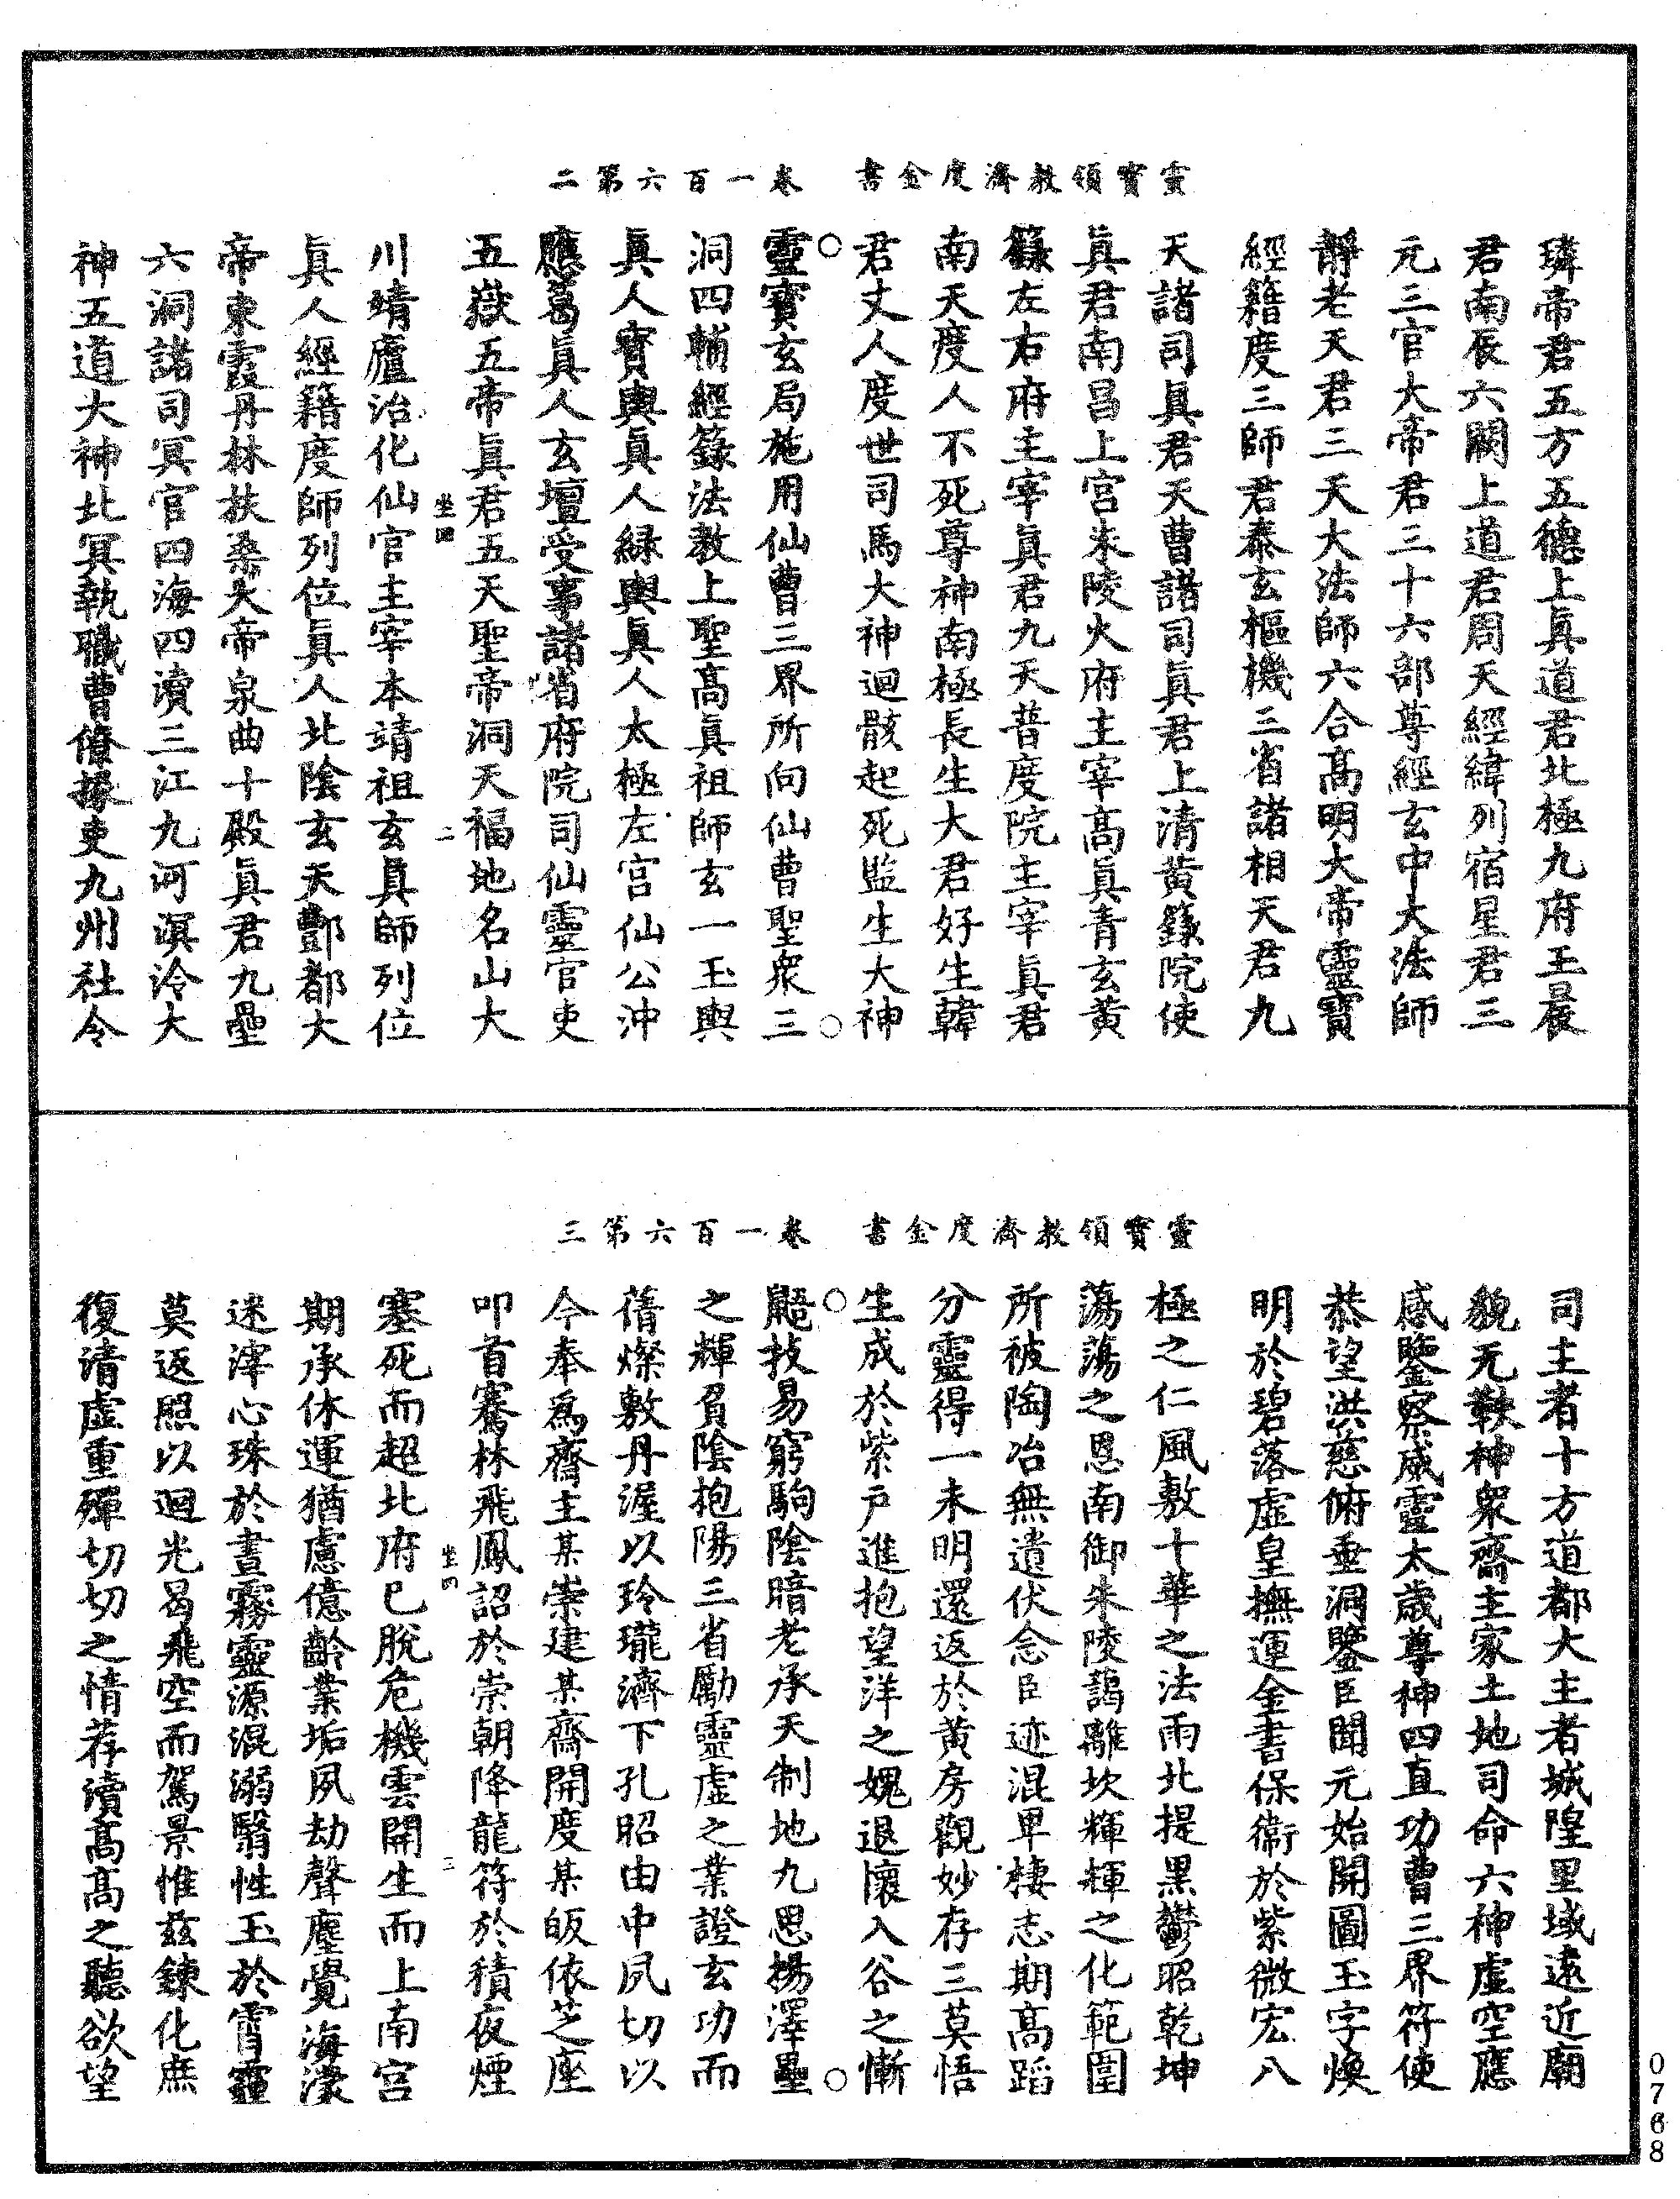 靈寶領教濟度金書 卷一百六第二
璘帝君五方五德上眞道君北極九府王晨
君南辰六闕上道君周天經緯列宿星君三
元三官大帝君三十六部尊經玄中大法師
靜老天君三天大法師六合高明大帝靈寶
經籍度三師君泰玄樞機三省諸相天君九
天諸司眞君天曹諸司眞君上清黃籙院使
眞君南昌上宫朱陵火府主宰高眞青玄黃
籙左右府主宰眞君九天普度院主宰眞君
南天度人不死尊神南極長生大君好生韓
君丈人度世司馬大神迴骸起死監生大神
靈寶玄局施用仙曹三界所向仙曹聖衆三
洞四輔經籙法教上聖高眞祖師玄一玉輿
眞人寶輿眞人綠輿眞人太極左宫仙公沖
應葛眞人玄壇受事諸省府院司仙靈官吏
五嶽五帝眞君五天聖帝洞天福地名山大
坐四 二
川靖廬治化仙官主宰本靖祖玄眞師列位
眞人經籍度師列位眞人北陰玄天酆都大
帝東霞丹林扶桑大帝泉曲十殿眞君九壘
六洞諸司冥官四海四瀆三江九河溟泠大
神五道大神北冥執職曹僚掾吏九州社令
靈寶領教濟度金書 卷一百六第三
司主者十方道都大主者城隍里域遠近廟
貌无鞅神衆齋主家土地司命六神虚空應
感鑒察威靈太歲尊神四直功曹三界符使
恭望洪慈俯垂洞鑒臣聞元始開圖玉字煥
明於碧落虚皇撫運金書保衞於紫微宏八
極之仁風敷十華之法雨北提黑鬱昭乾坤
蕩蕩之恩南御朱陵藹離坎輝輝之化範圍
所被陶冶無遺伏念臣迹混卑棲志期高蹈
分靈得一未明還返於黃房觀妙存三莫悟
生成於紫戶進抱望洋之媿退懷入谷之慚
鼯技易窮駒陰暗老承天制地九思揚澤壘
之輝負陰抱陽三省勵靈虚之業證玄功而
蒨燦敷丹渥以玲瓏濟下孔昭由中夙切以
今奉爲齋主某崇建某齋開度某皈依芝座
叩首騫林飛鳳詔於崇朝降龍符於積夜煙
坐四 三
塞死而超北府已脫危機雲開生而上南宫
期承休運猶慮億齡業垢夙劫聲塵覺海濛
迷津心珠於晝霧靈源混溺翳性玉於霄霾
莫返照以迴光曷飛空而駕景惟兹鍊化庶
復清虚重殫切切之情荐瀆高高之聽欲望
0768